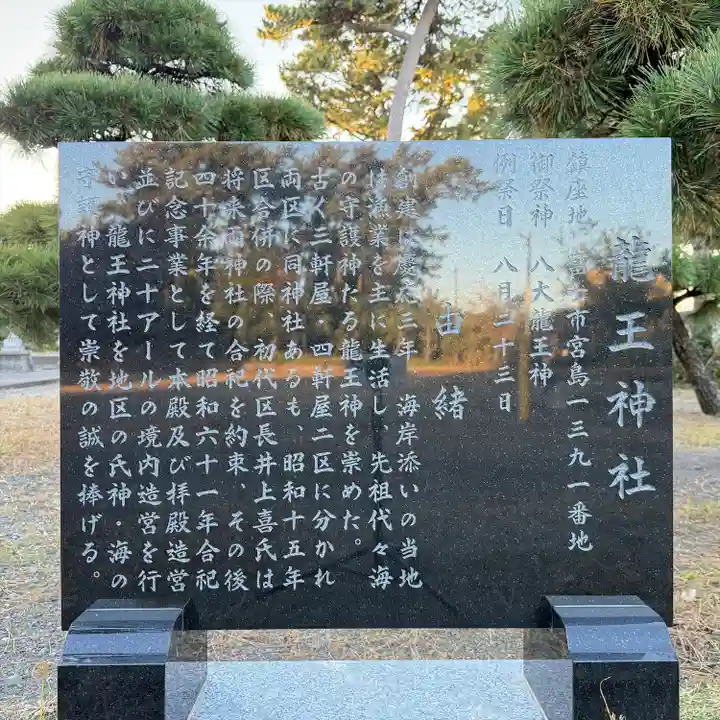 龍王神社
鎮座地　富士市宮島一三九一番地
御祭神　八大龍王神
例祭日　八月二十三日
由緒
創建は慶応三年　海岸添いの当地
は漁業を主に生活し、先祖代々海
の守護神たる龍王神を崇めた。
古く三軒屋、四軒屋二区に分かれ
両区に同神社あるも、昭和十五年
区合併の際、初代区長井上喜氏は
将来両神社の合祀を約束、その後
四十余年を経て昭和六十一年合祀
記念事業として本殿及び拝殿造営
並びに二十アールの境内造営を行
い、龍王神社を地区の氏神・海の
守護神として崇敬の誠を捧げる。